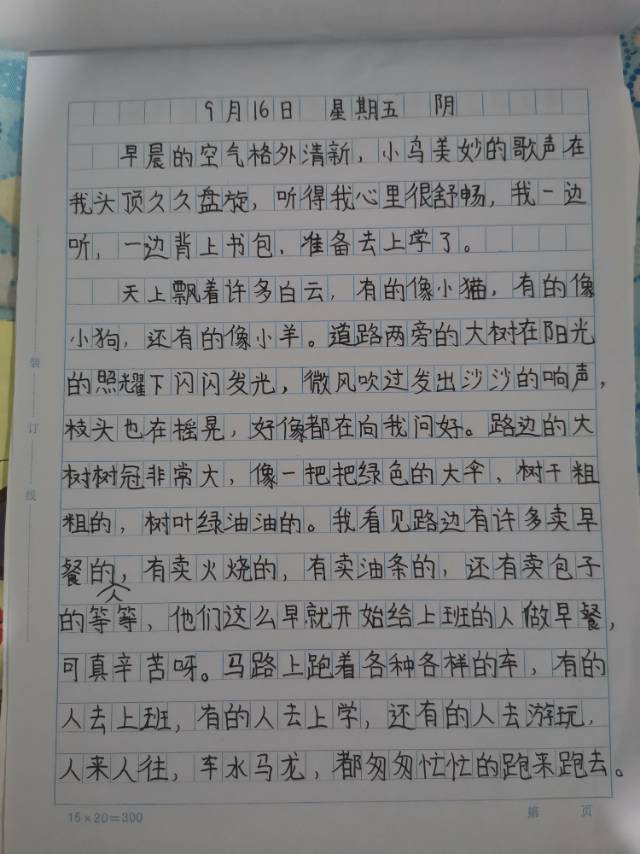 9月16日 星期五 阴
早晨的空气格外清新，小鸟美妙的歌声在
我头顶久久盘旋，听得我心里很舒畅，我一边
听，一边背上书包，准备去上学了。
天上飘着许多白云，有的像小猫，有的像
小狗，还有的像小羊。道路两旁的大树在阳光
的照耀下闪闪发光，微风吹过发出沙沙的响声，
枝头也在摇晃，好像都在向我问好。路边的大
树树冠非常大，像一把把绿色的大伞，树干粗
粗的，树叶绿油油的。我看见路边有许多卖早
餐的人，有卖火烧的，有卖油条的，还有卖包子
的等等，他们这么早就开始给上班的人做早餐，
可真辛苦呀。马路上跑着各种各样的车，有的
人去上班，有的人去上学，还有的人去游玩，
人来人往，车水马龙，都匆匆忙忙的跑来跑去。
装
订
线
15×20=300
第 页